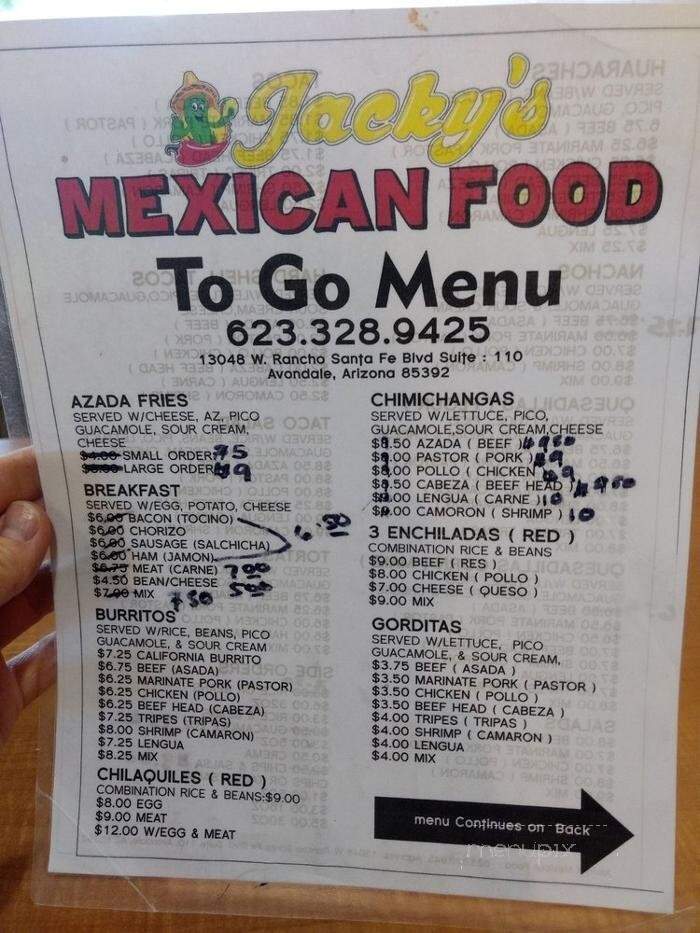 Jacky's
MEXICAN FOOD
To Go Menu
623.328.9425
13048 W. Rancho Santa Fe Blvd Suite : 110
Avondale, Arizona 85392
AZADA FRIES
SERVED W/CHEESE, AZ, PICO
GUACAMOLE, SOUR CREAM,
CHEESE
$4.00 SMALL ORDER 75
$8.00 LARGE ORDER $9
BREAKFAST
SERVED W/EGG, POTATO, CHEESE
$6.00 BACON (TOCINO)
$6.00 CHORIZO
$6.00 SAUSAGE (SALCHICHA) 6.50
$6.00 HAM (JAMON)
$6.75 MEAT (CARNE) 7.00
$4.50 BEAN/CHEESE 500
$7.00 MIX 750
BURRITOS
SERVED W/RICE, BEANS, PICO
GUACAMOLE, & SOUR CREAM
$7.25 CALIFORNIA BURRITO
$6.75 BEEF (ASADA)
$6.25 MARINATE PORK (PASTOR)
$6.25 CHICKEN (POLLO)
$6.25 BEEF HEAD (CABEZA)
$7.25 TRIPES (TRIPAS)
$8.00 SHRIMP (CAMARON)
$7.25 LENGUA
$8.25 MIX
CHILAQUILES ( RED )
COMBINATION RICE & BEANS:$9.00
$8.00 EGG
$9.00 MEAT
$12.00 W/EGG & MEAT
CHIMICHANGAS
SERVED W/LETTUCE, PICO,
GUACAMOLE,SOUR CREAM,CHEESE
$8.50 AZADA ( BEEF ) $950
$8.00 PASTOR ( PORK ) $9
$8,00 POLLO ( CHICKEN $9
$8.50 CABEZA ( BEEF HEAD ) $950
$9.00 LENGUA ( CARNE ) 10
$9.00 CAMORON ( SHRIMP ) 10
3 ENCHILADAS ( RED )
COMBINATION RICE & BEANS
$9.00 BEEF ( RES )
$8.00 CHICKEN ( POLLO )
$7.00 CHEESE ( QUESO )
$9.00 MIX
GORDITAS
SERVED W/LETTUCE, PICO
GUACAMOLE, & SOUR CREAM,
$3.75 BEEF ( ASADA )
$3.50 MARINATE PORK ( PASTOR )
$3.50 CHICKEN ( POLLO )
$3.50 BEEF HEAD ( CABEZA )
$4.00 TRIPES ( TRIPAS )
$4.00 SHRIMP ( CAMARON )
$4.00 LENGUA
$4.00 MIX
menu Continues on Back
menupix